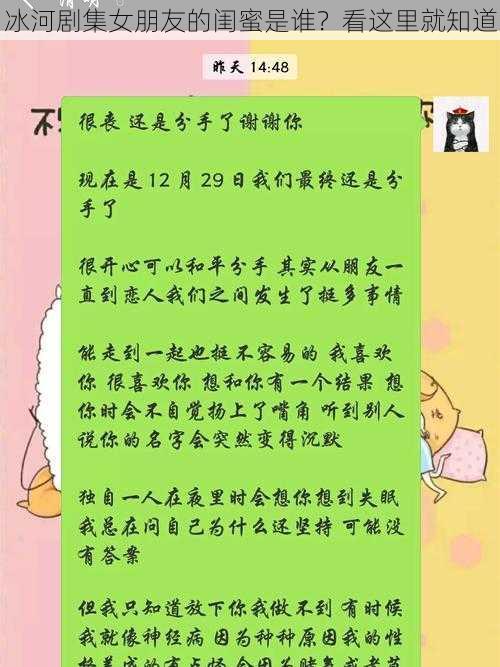 冰河剧集女朋友的闺蜜是谁？看这里就知道
昨天 14:48
很丧 还是分手了谢谢你
现在是 12 月 29 日我们最终还是分
手了
很开心可以和平分手 其实从朋友一
直到恋人我们之间发生了挺多事情
能走到一起也挺不容易的 我喜欢
你 很喜欢你 想和你有一个结果 想
你时会不自觉扬上了嘴角 听到别人
说你的名字会突然变得沉默
独自一人在夜里时会想你想到失眠
我总在问自己为什么还坚持 可能没
有答案
但我只知道放下你我做不到 有时候
我就像神经病 因为种种原因我的性